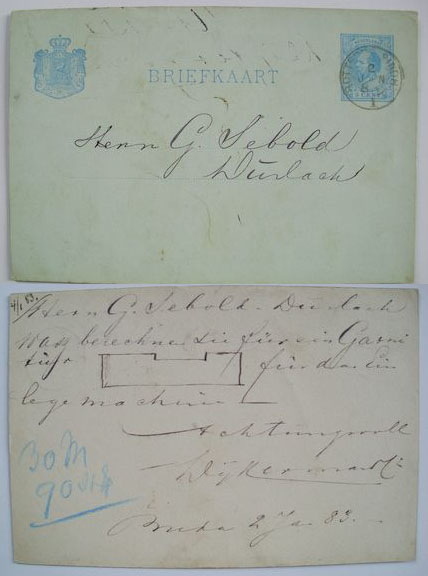 BRIEFKAART
Herrn G. Sebold
Durlach
4/1 83.
Herrn G. Sebold. Durlach
was berechnen Sie für ein Garni
tuhr für das Ein
lege maschine
Achtungsvoll
30 M
90
Breda 2 Jan 83.